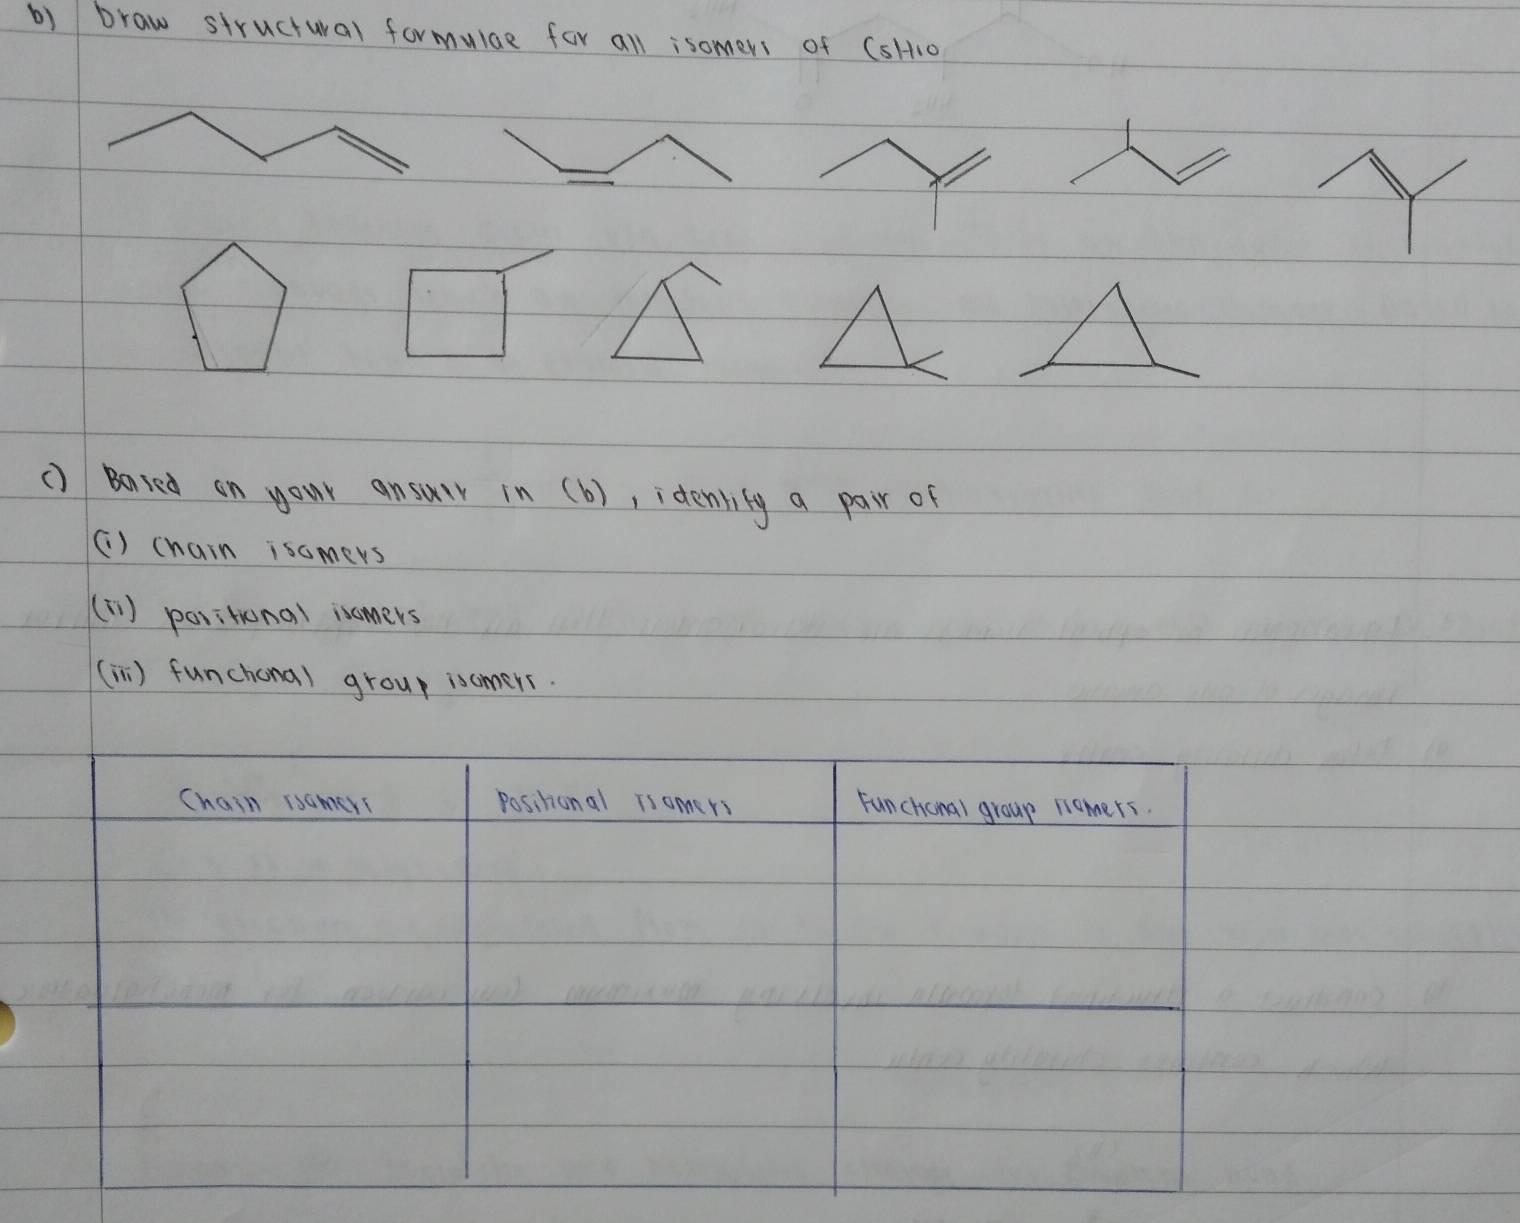 b) Draw structural formulae for all isomers of C5H10
c) Based on your answer in (b), identify a pair of
(i) chain isomers
(ii) positional isomers
(iii) functional group isomers.
Chain isomers Positional isomers Functional group isomers.